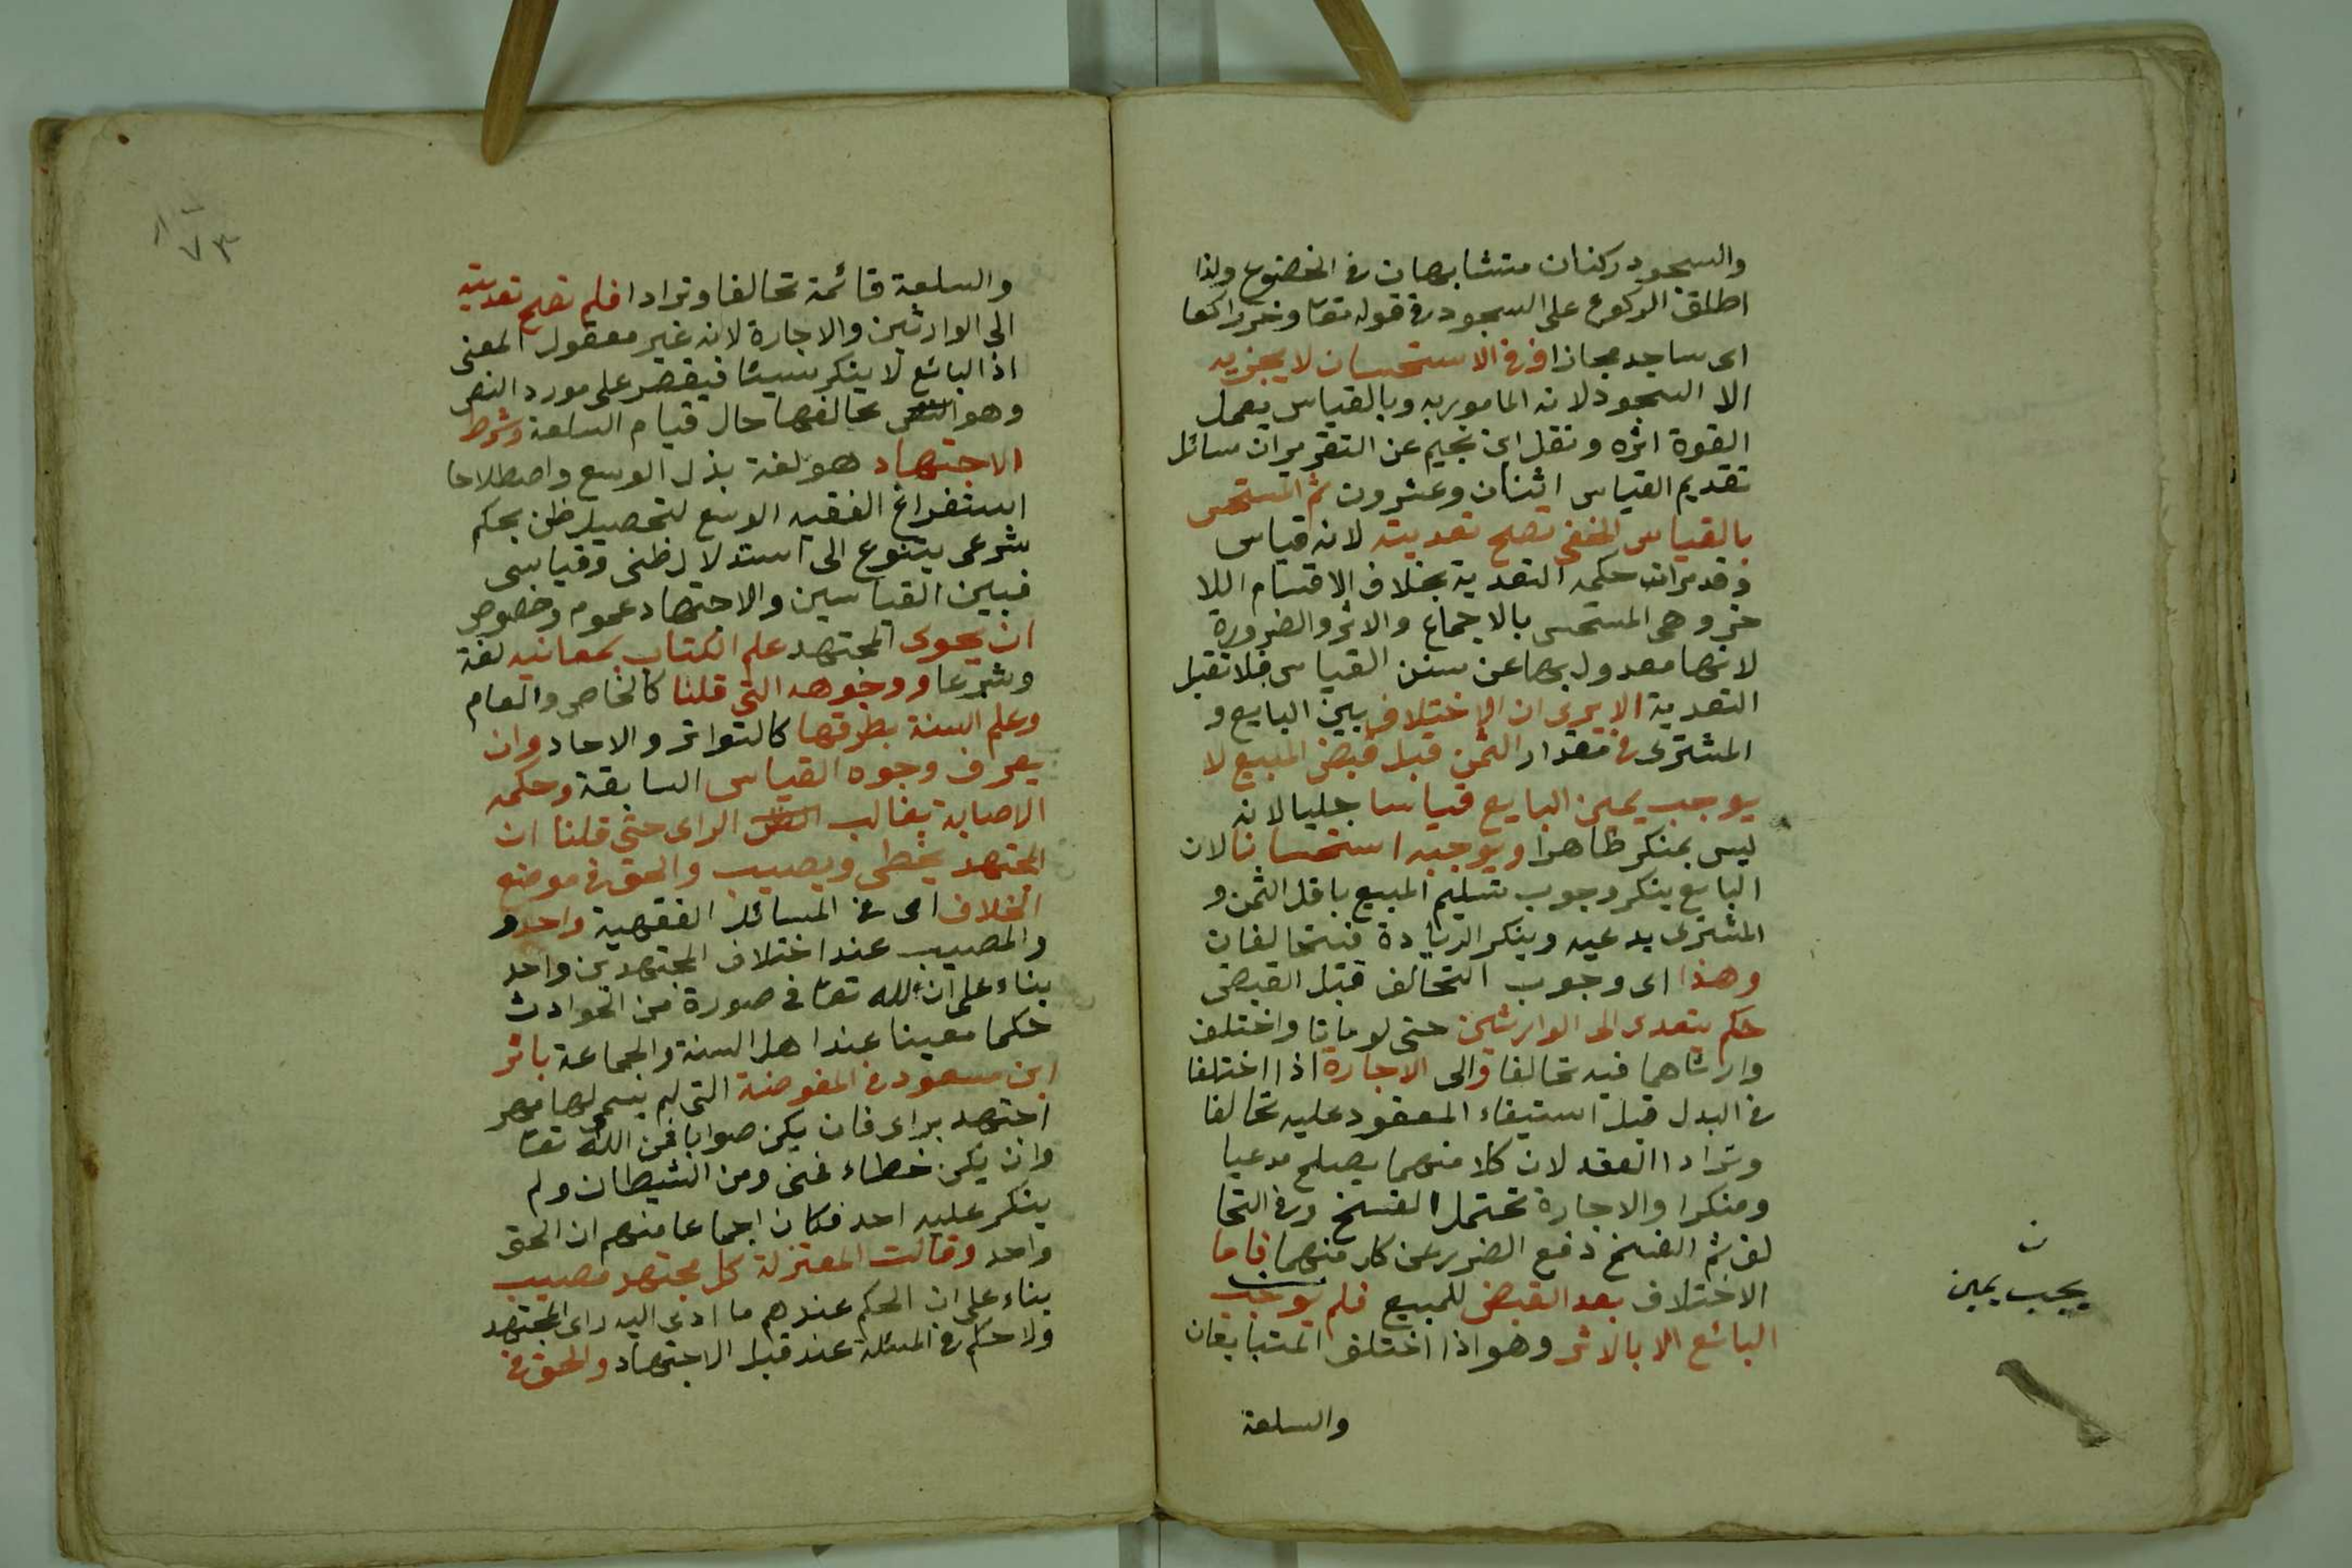 والسجود ركنان متشابهان في الخضوع ولذا
اطلق الركوع على السجود في قوله تعا وخر راكعا
اى ساجد مجازا فى الاستحسان لا يجزيه
الا السجود لانه المامور به وبالقياس يعمل
لقوة اثره ونقل ابن نجيم عن التقرير ان سائل
تقديم القياس اثنان وعشرون ثم المستحسن
بالقياس الخفى تصح تعديته لانه قياس
وقد مر ان حكمه التعدية بخلاف الاقسام اللا
خر وهى المستحسن بالاجماع والاثر والضرورة
لانها معدول بها عن سنن القياس فلا تقبل
التعدية الا يرى ان الاختلاف بين البايع و
المشترى في مقدار الثمن قبل قبض المبيع لا
يوجب يمين البايع قياسا جليا لانه
ليس بمنكر ظاهرا ويوجبه استحسانا لان
البايع ينكر وجوب تسليم المبيع باقل الثمن و
المشترى يدعيه وينكر الزيادة فيتحالفان
وهذا اى وجوب التحالف قبل القبض
حكم يتعدى الى الوارثين حتى لو ماتا واختلف
وارثاهما فيه تحالفا والى الاجارة اذا اختلفا
في البدل قبل استيفاء المعقود عليه تحالفا
وترادا العقد لان كلا منهما يصلح مدعيا
ومنكرا والاجارة تحتمل الفسخ وفي التحا
لف ثم الفسخ دفع الضرر عن كل منهما فاما
الاختلاف بعد القبض للمبيع فلم يوجب
البائع الا بالاثر وهو اذا اختلف المتبايعان
والسلعة
ن
يجب يمين
٧٣
والسلعة قائمة تحالفا وترادا فلم تصح تعديته
الى الوارثين والاجارة لانه غير معقول المعنى
اذ البائع لا ينكر شيئا فيقصر على مورد النص
وهو تحالفهما حال قيام السلعة وشرط
الاجتهاد هو لغة بذل الوسع واصطلاحا
استفراغ الفقيه الوسع لتحصيل ظن بحكم
شرعى يتنوع الى استدلال ظنى وقياسى
فبين القياسين والاجتهاد عموم وخصوص
ان يحوى المجتهد علم الكتاب بمعانيه لغة
وشرعا ووجوهه التى قلنا كالخاص والعام
وعلم السنة بطرقها كالتواتر والاحاد وان
يعرف وجوه القياس السابقة وحكمه
الاصابة بغالب الراى حتى قلنا ان
المجتهد يخطى ويصيب والحق في موضع
الخلاف اى في المسائل الفقهية واحد و
والمصيب عند اختلاف المجتهدين واحد
بناء على ان لله تعا فى صورة من الحوادث
حكما معينا عند اهل السنة والجماعة باثر
ابن مسعود في المفوضة التى لم يسم لها مهر
اجتهد براى فان يكن صوابا فمن الله تعا
وان يكن خطاء فمنى ومن الشيطان ولم
ينكر عليه احد فكان اجماعا منهم ان الحق
واحد وقالت المعتزلة كل مجتهد مصيب
بناء على ان الحكم عندهم ما ادى اليه راى المجتهد
ولا حكم في المسئلة عند قبل الاجتهاد والحق في